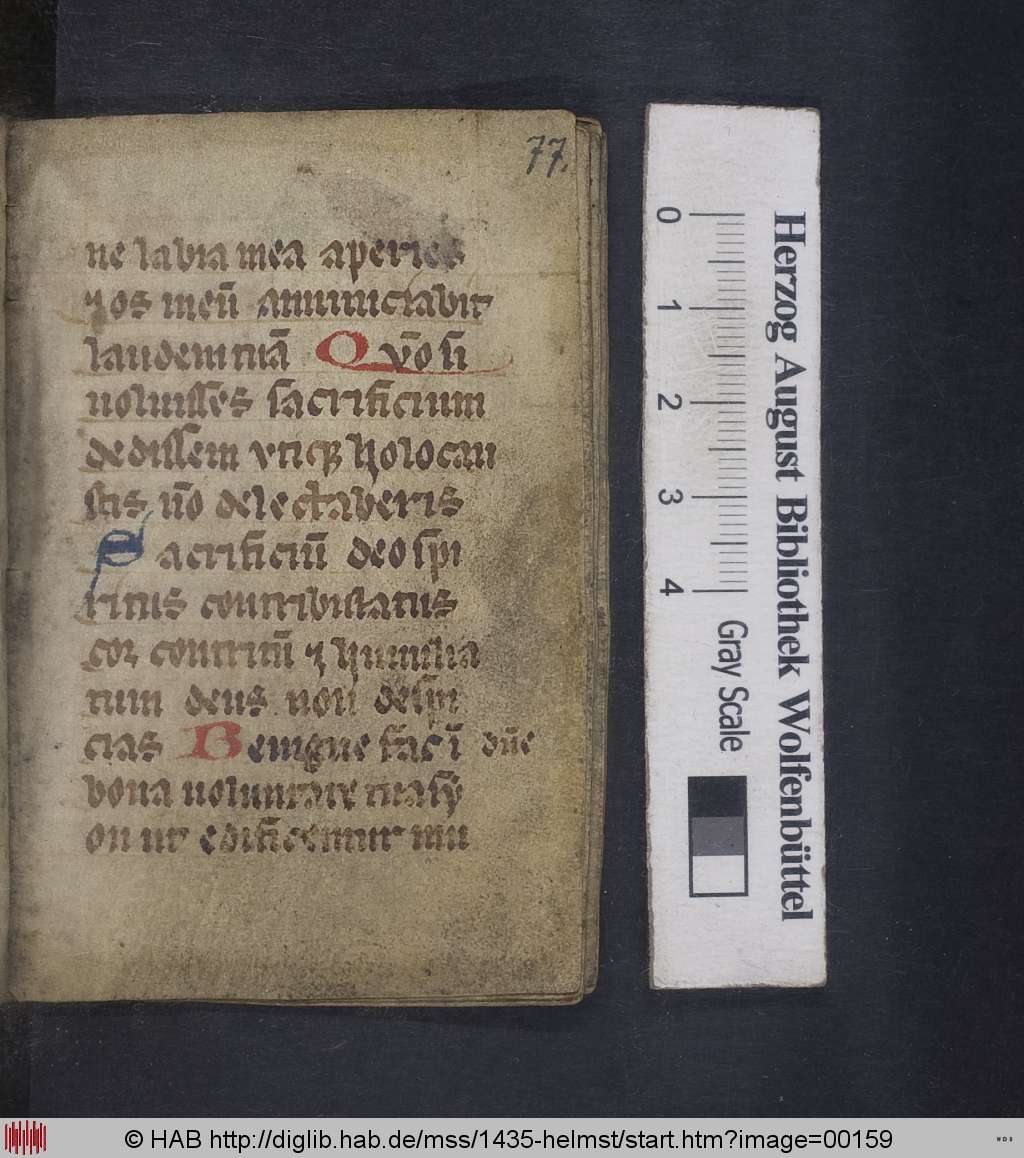 77.
ne labia mea aperies
⁊ os meū annunciabit
laudem tuā Qm̄ si
uoluisses sacrificium
dedissem vtiqꝫ holocau
stis nō delectaberis
Sacrificiū deo spi
ritus contribulatus
cor contritū ⁊ humilia
tum deus non despi
cias Benigne fac ī dn̄e
bona uoluntate tua sy
on ut edificentur mu
Herzog August Bibliothek Wolfenbüttel
0 1 2 3 4 Gray Scale
© HAB http://diglib.hab.de/mss/1435-helmst/start.htm?image=00159